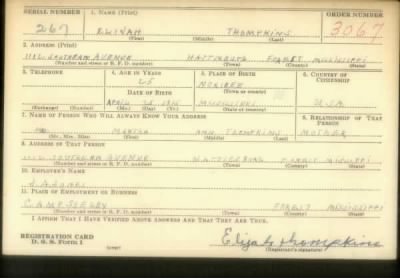 SERIAL NUMBER 1. NAME (Print) ORDER NUMBER
267 ELIJAH THOMPKINS 3067
(First) (Middle) (Last)
2. ADDRESS (Print)
SOUTHERN AVENUE HATTIESBURG FORREST MISSISSIPPI
(Number and street or R. F. D. number) (Town) (County) (State)
3. TELEPHONE 4. AGE IN YEARS 5. PLACE OF BIRTH 6. COUNTRY OF CITIZENSHIP
25
DATE OF BIRTH (Town or county)
APRIL MISSISSIPPI U.S.A.
(Exchange) (Number) (Mo.) (Day) (Yr.) (State or country)
7. NAME OF PERSON WHO WILL ALWAYS KNOW YOUR ADDRESS 8. RELATIONSHIP OF THAT PERSON
MARTHA ANN THOMPKINS MOTHER
(Mr., Mrs., Miss) (First) (Middle) (Last)
9. ADDRESS OF THAT PERSON
SOUTHERN AVENUE HATTIESBURG
(Number and street or R. F. D. number) (Town) (County) (State)
10. EMPLOYER'S NAME
JONES
11. PLACE OF EMPLOYMENT OR BUSINESS
CAMP SHELBY FORREST MISSISSIPPI
(Number and street or R. F. D. number) (Town) (County) (State)
I AFFIRM THAT I HAVE VERIFIED ABOVE ANSWERS AND THAT THEY ARE TRUE.
REGISTRATION CARD
D. S. S. Form 1 (over) Elijah Thompkins
(Registrant's signature)